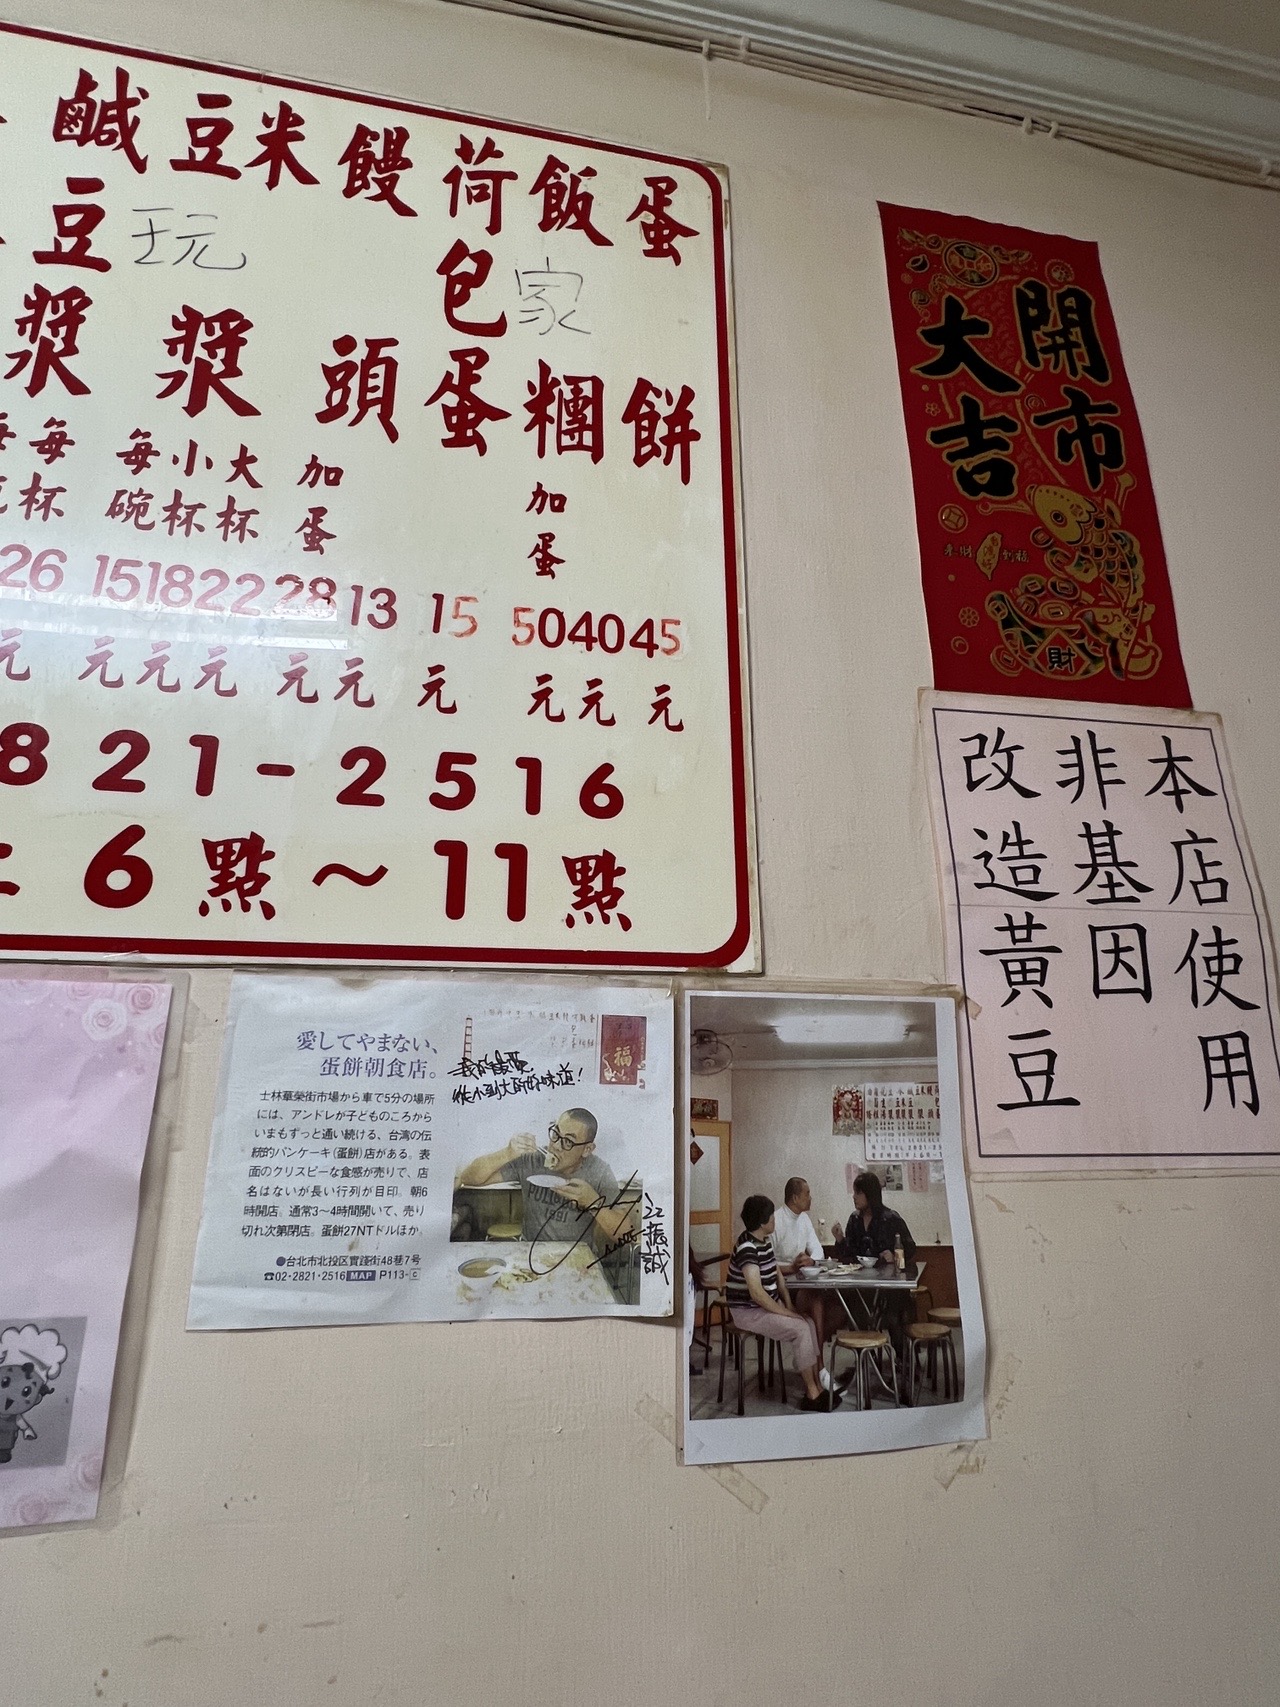 鹹豆漿
豆漿
米漿
饅頭
荷包蛋
飯糰
蛋餅
玩
家
每杯
每碗
小杯
大杯
加蛋
加蛋
26 15 18 22 22 28 13 15 50 40 45
元 元 元 元 元 元 元 元 元 元
821-2516
6點～11點
開市
大吉
財
本店使用
非基因
改造黃豆
愛してやまない、
蛋餅朝食店。
士林華榮街市場から車で5分の場所
には、アンドレが子どものころから
いまもずっと通い続ける、台湾の伝
統的パンケーキ(蛋餅)店がある。表
面のクリスピーな食感が売りで、店
名はないが長い行列が目印。朝6
時開店。通常3〜4時間開いて、売り
切れ次第閉店。蛋餅27NTドルほか。
●台北市北投区實踐街48巷7号
☎02・2821・2516 MAP P113-C
從小到大的好味道！
福
1991
江振誠